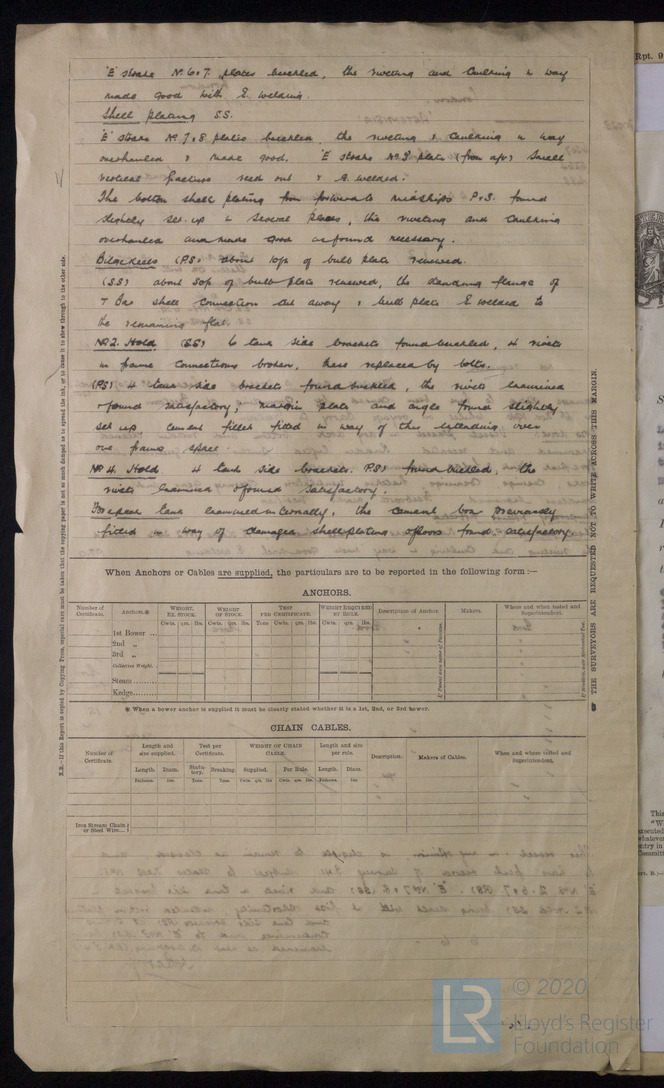 'E' strake No. 6 & 7 plates buckled, the riveting and caulking in way
made good with E. welding.
Shell plating S.S.
'E' strake No 7 & 8 plates buckled the riveting & caulking in way
overhauled & made good. 'E' strake No 3 plate (from aft) small
vertical fracture veed out & E. welded.
The bottom shell plating from forward to midships P & S. found
slightly set up in several places, the riveting and caulking
overhauled and made good as found necessary.
Bilge keels (P.S) about 10ft of bulb plate renewed.
(S.S) about 50ft of bulb plate renewed, the standing flange of
T Bar shell connection cut away & bulb plate E welded to
the remaining flat.
No 2. Hold (S.S) 6 tank side brackets found buckled, 4 rivets
in frame connections broken, these replaced by bolts.
(P.S) 4 tank side brackets found buckled, the rivets examined
& found satisfactory; margin plate and angle found slightly
set up, cement fillet fitted in way of this extending over
one frame space.
No 4. Hold 4 tank side brackets (P.S) found buckled, the
rivets examined & found satisfactory.
Forepeak tank examined internally, the cement box previously
fitted in way of damaged shell plating & floors found satisfactory.
When Anchors or Cables are supplied, the particulars are to be reported in the following form :—
ANCHORS.
Number of Certificate. Anchors.* WEIGHT. EX. STOCK. WEIGHT OF STOCK. TEST PER CERTIFICATE. WEIGHT REQUIRED BY RULE. Description of Anchor. Makers. Where and when tested and Superintendent.
Cwts. qrs. lbs. Cwts. qrs. lbs. Tons Cwts. qrs. lbs. Cwts. qrs. lbs.
1st Bower ...
2nd „
3rd „
Collective Weight.
Stream
Kedge
* When a bower anchor is supplied it must be clearly stated whether it is a 1st, 2nd, or 3rd bower.
CHAIN CABLES.
Number of Certificate. Length and size supplied. Test per Certificate. WEIGHT OF CHAIN CABLE. Length and size per rule. Description. Makers of Cables. When and where tested and Superintendent.
Length. Diam. Statutory. Breaking. Supplied. Per Rule. Length. Diam.
Fathoms. Ins. Tons. Tons. Cwts. qrs. lbs Cwts. qrs. lbs Fathoms. Ins.
Iron Stream Chain
or Steel Wire
N.B.—If this Report is copied by Copying Press, especial care must be taken that the copying paper is not so much damped as to spread the ink, or to cause it to show through to the other side.
THE SURVEYORS ARE REQUESTED NOT TO WRITE ACROSS THIS MARGIN.
Rpt. 9
LR
© 2020
Lloyd's Register
Foundation